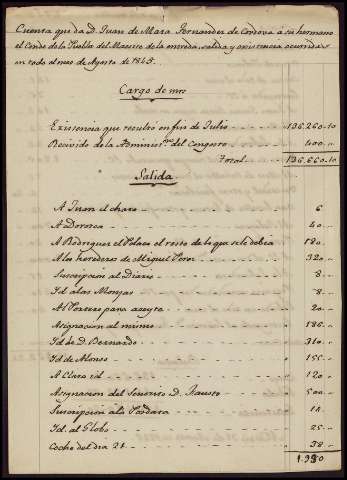 Cuenta que da D. Juan de Mata Fernandez de Cordova á su hermano
el Conde de la Puebla del Maestre de la entrada, salida y existencia ocurridas
en todo el mes de Agosto de 1845.
Cargo de mrs
Existencia que resultó en fin de Julio 136.260.10
Recivido de la Administ.on del Congosto 400
Total 136.660.10
Salida
A Juan el charo 6
A Dorotea 40
A Rodriguez el Polaco el resto de lo que se le debia 180
A los herederos de Miguel 320
Suscripcion al Diario 8
Id. a las Monjas 8
Al Portero para aceyte 20
Asignacion al mismo 186
Id. de D. Bernardo 310
Id. de Alonso 155
A Claro id. 120
Asignacion del Señorito D. Fausto 500
Suscripcion á la 14
Id. al Globo 25
Coche del dia 21 38
1.930